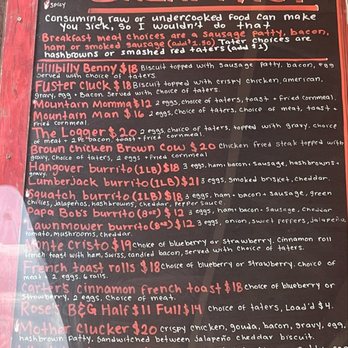 spicy
Consuming raw or undercooked food can make
you sick, so I wouldn't do that.
Breakfast meat choices are a sausage patty, bacon,
ham or smoked sausage (add $2.50) Tater choices are
hashbrowns or smashed red taters (add $1)
Hillbilly Benny $18 Biscuit topped with sausage patty, bacon, egg
served with choice of taters.
Fuster Cluck $18 Biscuit topped with crispy chicken, american,
gravy, egg + bacon. Served with choice of taters.
Mountain Momma $12 2 eggs, choice of taters, toast + fried cornmeal.
Mountain Man $16 2 eggs, choice of taters, choice of meat, toast +
fried cornmeal.
The Logger $20 2 eggs, choice of taters, topped with gravy. choice
of meat + 2pc bacon, toast + fried cornmeal.
Brown Chicken Brown Cow $20 Chicken fried steak topped with
gravy, choice of taters, 2 eggs + fried cornmeal.
Hangover burrito (1LB) $18 3 eggs, ham, bacon, sausage, hashbrowns +
gravy.
Lumberjack burrito (1LB) $21 3 eggs, smoked brisket, cheddar.
Squatch burrito (1LB) $18 3 eggs, ham, bacon, sausage, green
chilies, jalapeños, hashbrowns, cheddar, pepper sauce
Papa Bob's burrito (8oz) $12 3 eggs, ham, bacon, sausage, cheddar
Lawnmower burrito (8oz) $12 3 eggs, onion, sweet peppers, jalapeño
tomato, mushrooms, cheddar.
Monte Cristo $19 choice of blueberry or strawberry. Cinnamon roll
french toast with ham, swiss, candied bacon, served with choice of taters.
French toast rolls $18 choice of blueberry or strawberry. Choice of
meat + 2 eggs. 6 rolls.
Carter's cinnamon french toast $18 choice of blueberry or
strawberry, 2 eggs, choice of meat.
Rose's B&G Half $11 Full $14 choice of taters, Load'd $4.
Mother Clucker $20 crispy chicken, gouda, bacon, gravy, egg,
hashbrown patty, sandwitched between jalapeño cheddar biscuit.